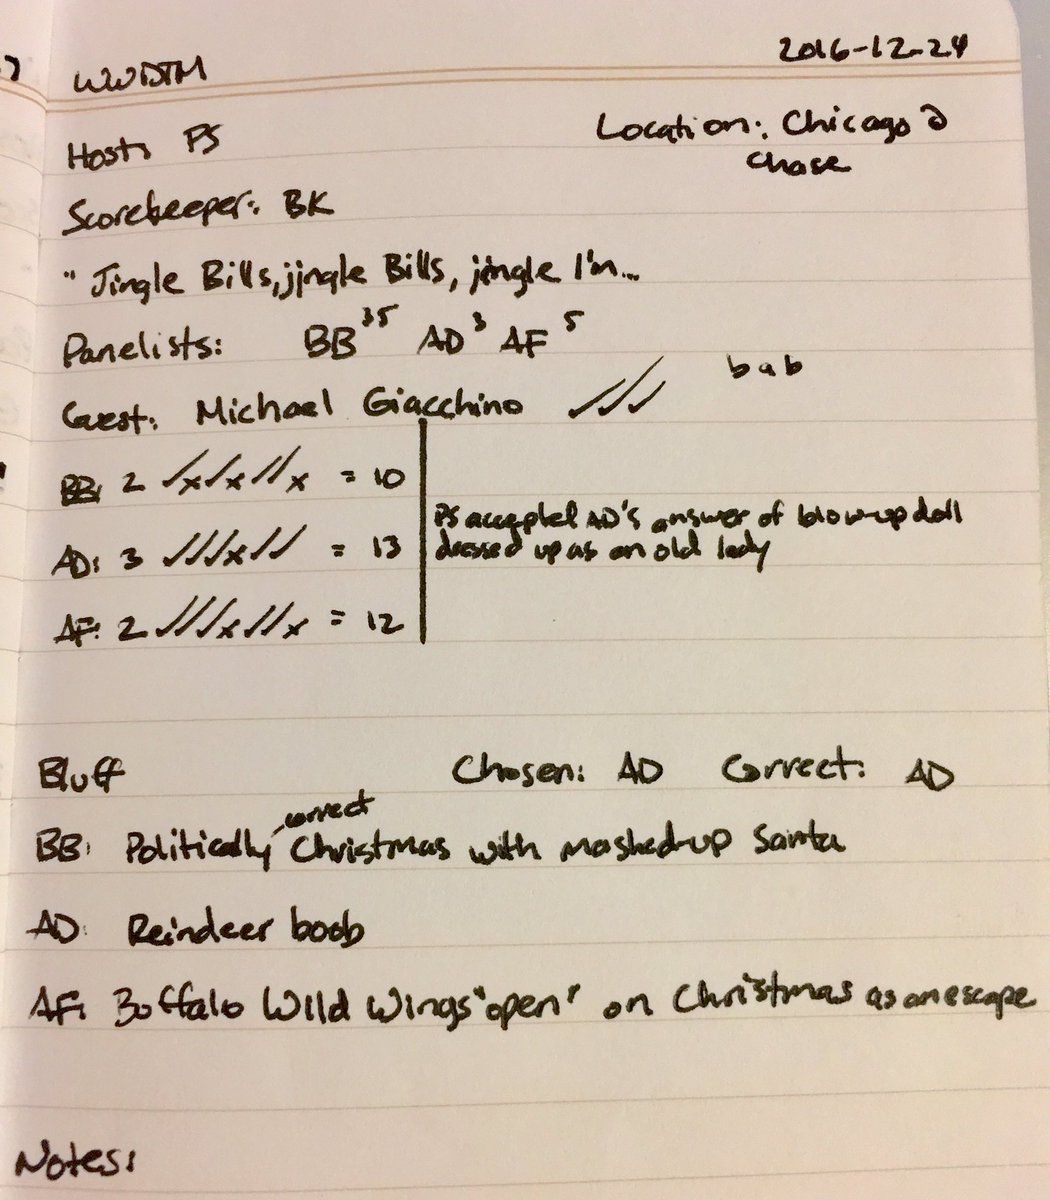 WWDTM 2016-12-24
Host: PS Location: Chicago @
Chase
Scorekeeper: BK
" Jingle Bills, jingle Bills, jingle I'm...
Panelists: BB 35 AD 3 AF 5
Guest: Michael Giacchino ✓✓✓ b a b
BB: 2 ✓x✓x✓✓x = 10
AD: 3 ✓✓✓x✓✓ = 13
PS accepted AD's answer of blow-up doll
dressed up as an old lady
AF: 2 ✓✓✓x✓✓x = 12
Bluff Chosen: AD Correct: AD
BB: Politically correct Christmas with mashed-up Santa
AD: Reindeer boob
AF: Buffalo Wild Wings "open" on Christmas as an escape
Notes: